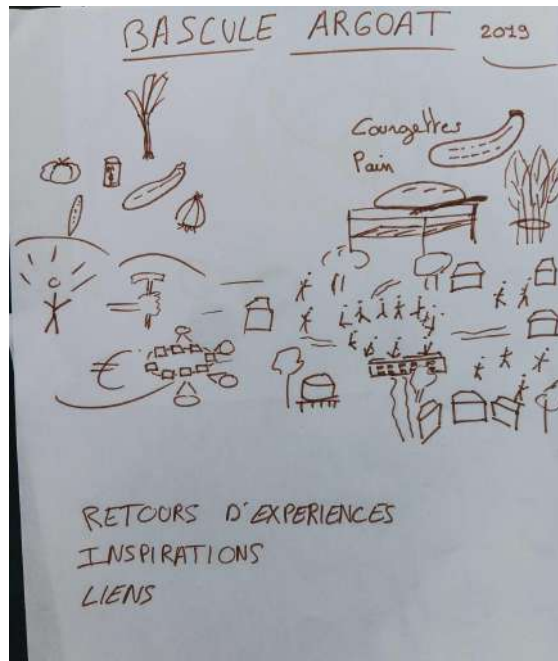 BASCULE ARGOAT 2019
Courgettes
Pain
RETOURS D'EXPERIENCES
INSPIRATIONS
LIENS